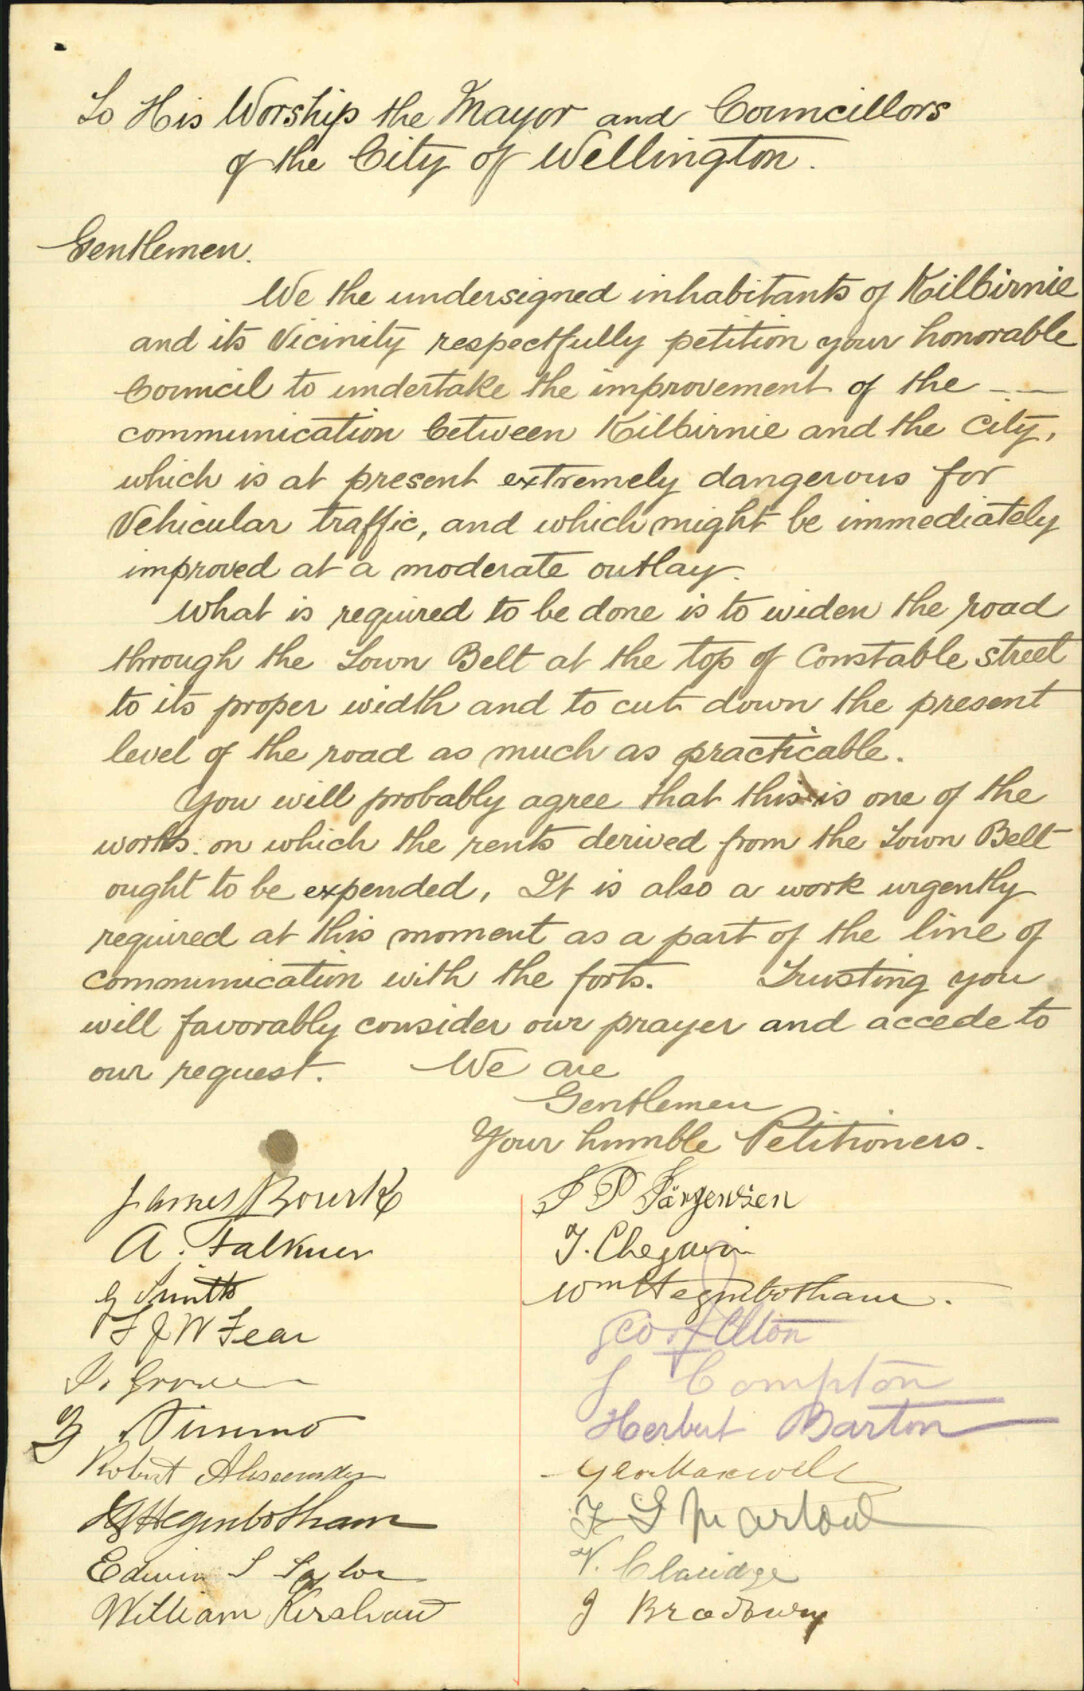 To His Worship the Mayor and Councillors
of the City of Wellington.
Gentlemen.
We the undersigned inhabitants of Kilbirnie
and its Vicinity respectfully petition your honorable
Council to undertake the improvement of the ——
communication between Kilbirnie and the City,
which is at present extremely dangerous for
Vehicular traffic, and which might be immediately
improved at a moderate outlay.
What is required to be done is to widen the road
through the Town Belt at the top of Constable street
to its proper width and to cut down the present
level of the road as much as practicable.
You will probably agree that this is one of the
works on which the rents derived from the Town Belt
ought to be expended. It is also a work urgently
required at this moment as a part of the line of
communication with the forts. Trusting you
will favorably consider our prayer and accede to
our request. We are
Gentlemen
Your humble Petitioners.
James Bourk
A. Falkner
G Smith
F J W Fear
Nimmo
Robert
Heginbotham
Edwin S Taylor
William Kershaw
P Jörgensen
T.
Wm Heginbotham.
Geo
J Compton
Herbert Barton
Geo Maxwell
F G Marlow
Claridge
J Bradbury